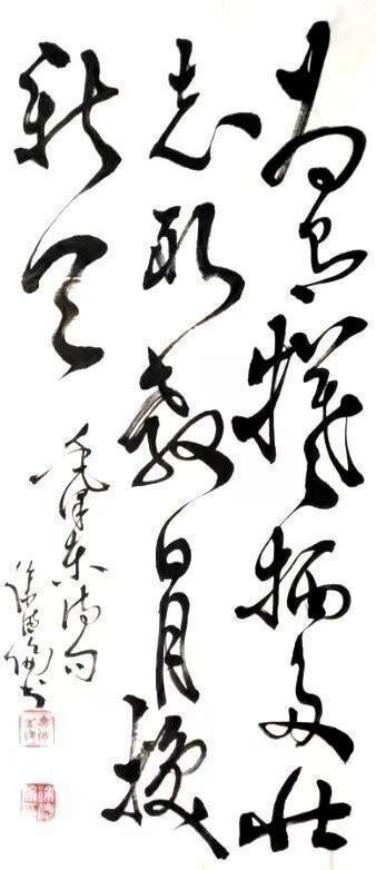 为有牺牲多壮
志敢教日月换
新天
毛泽东诗句
徐德伦书